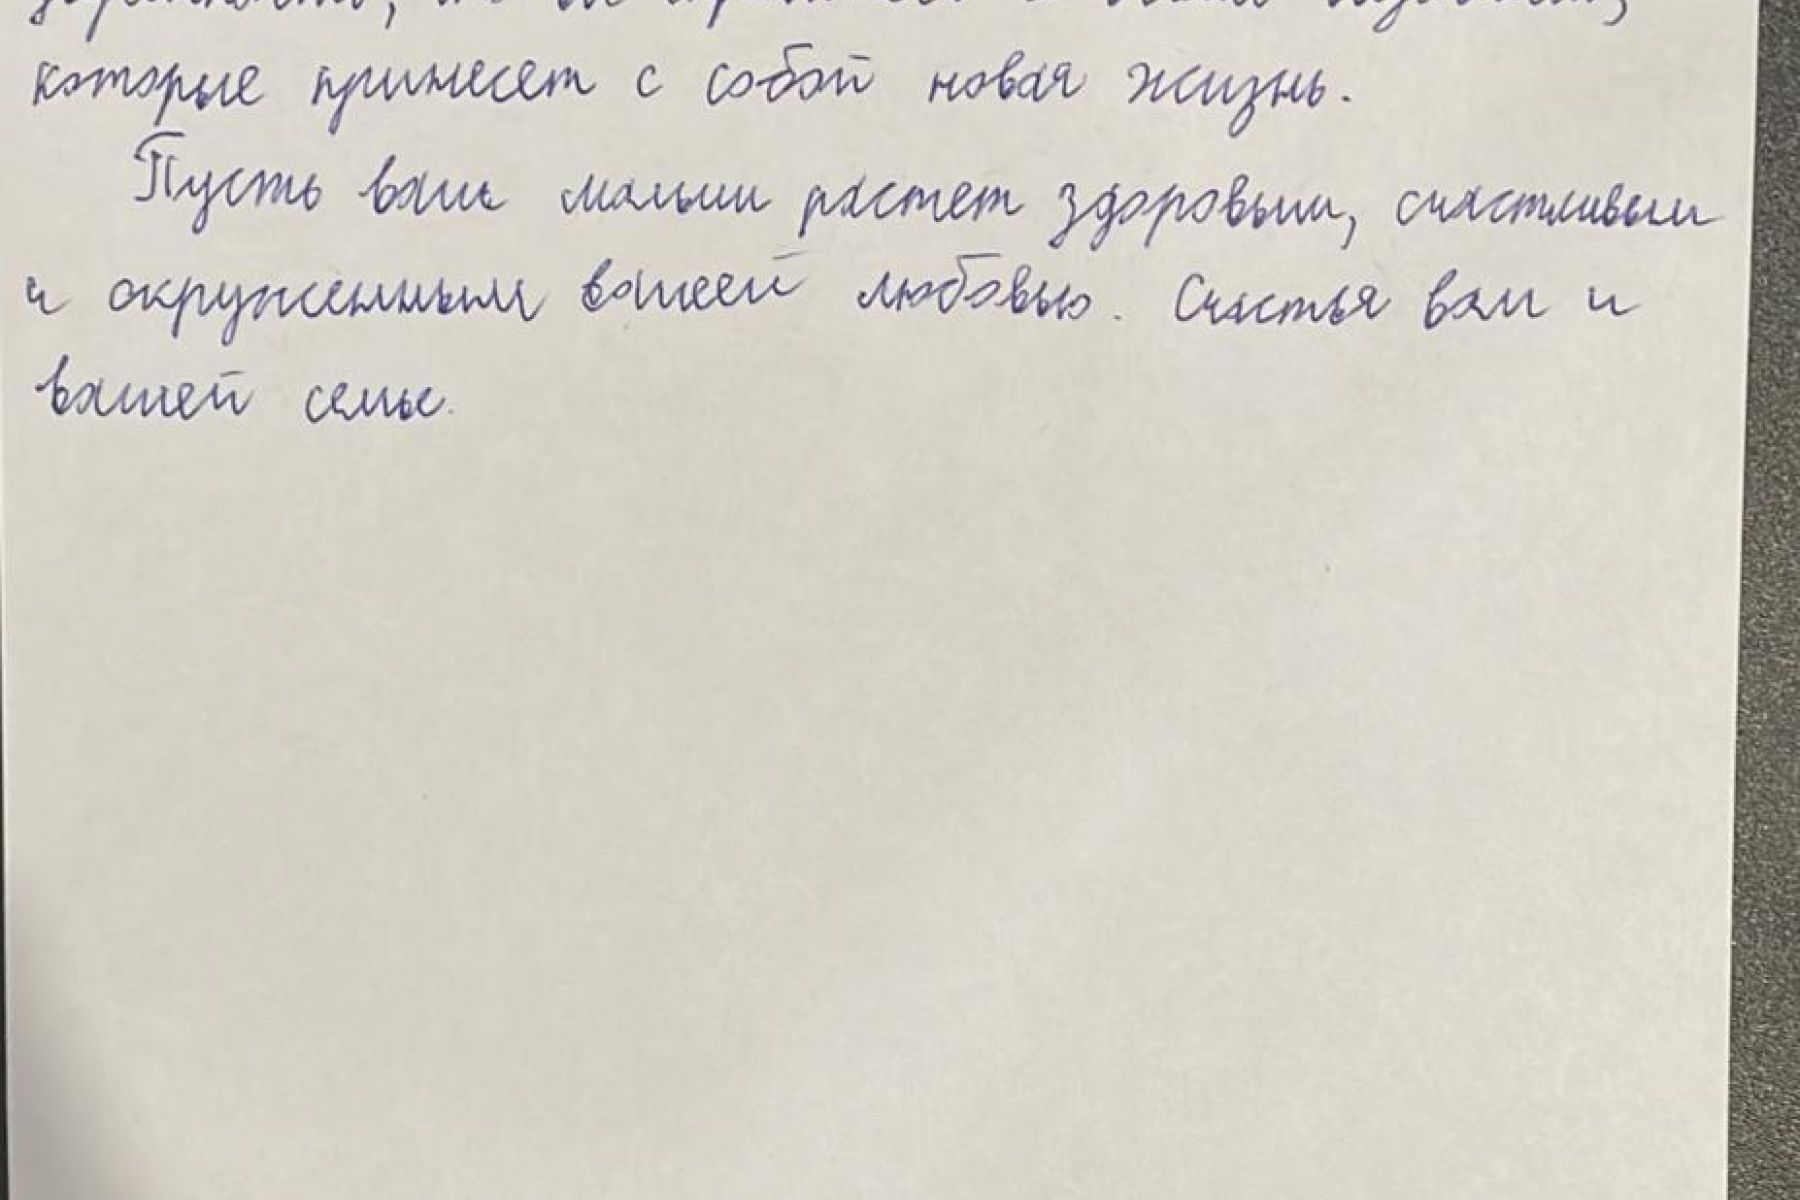 которые принесет с собой новая жизнь.
Пусть ваш малыш растет здоровым, счастливым
и окруженным вашей любовью. Счастья вам и
вашей семье.